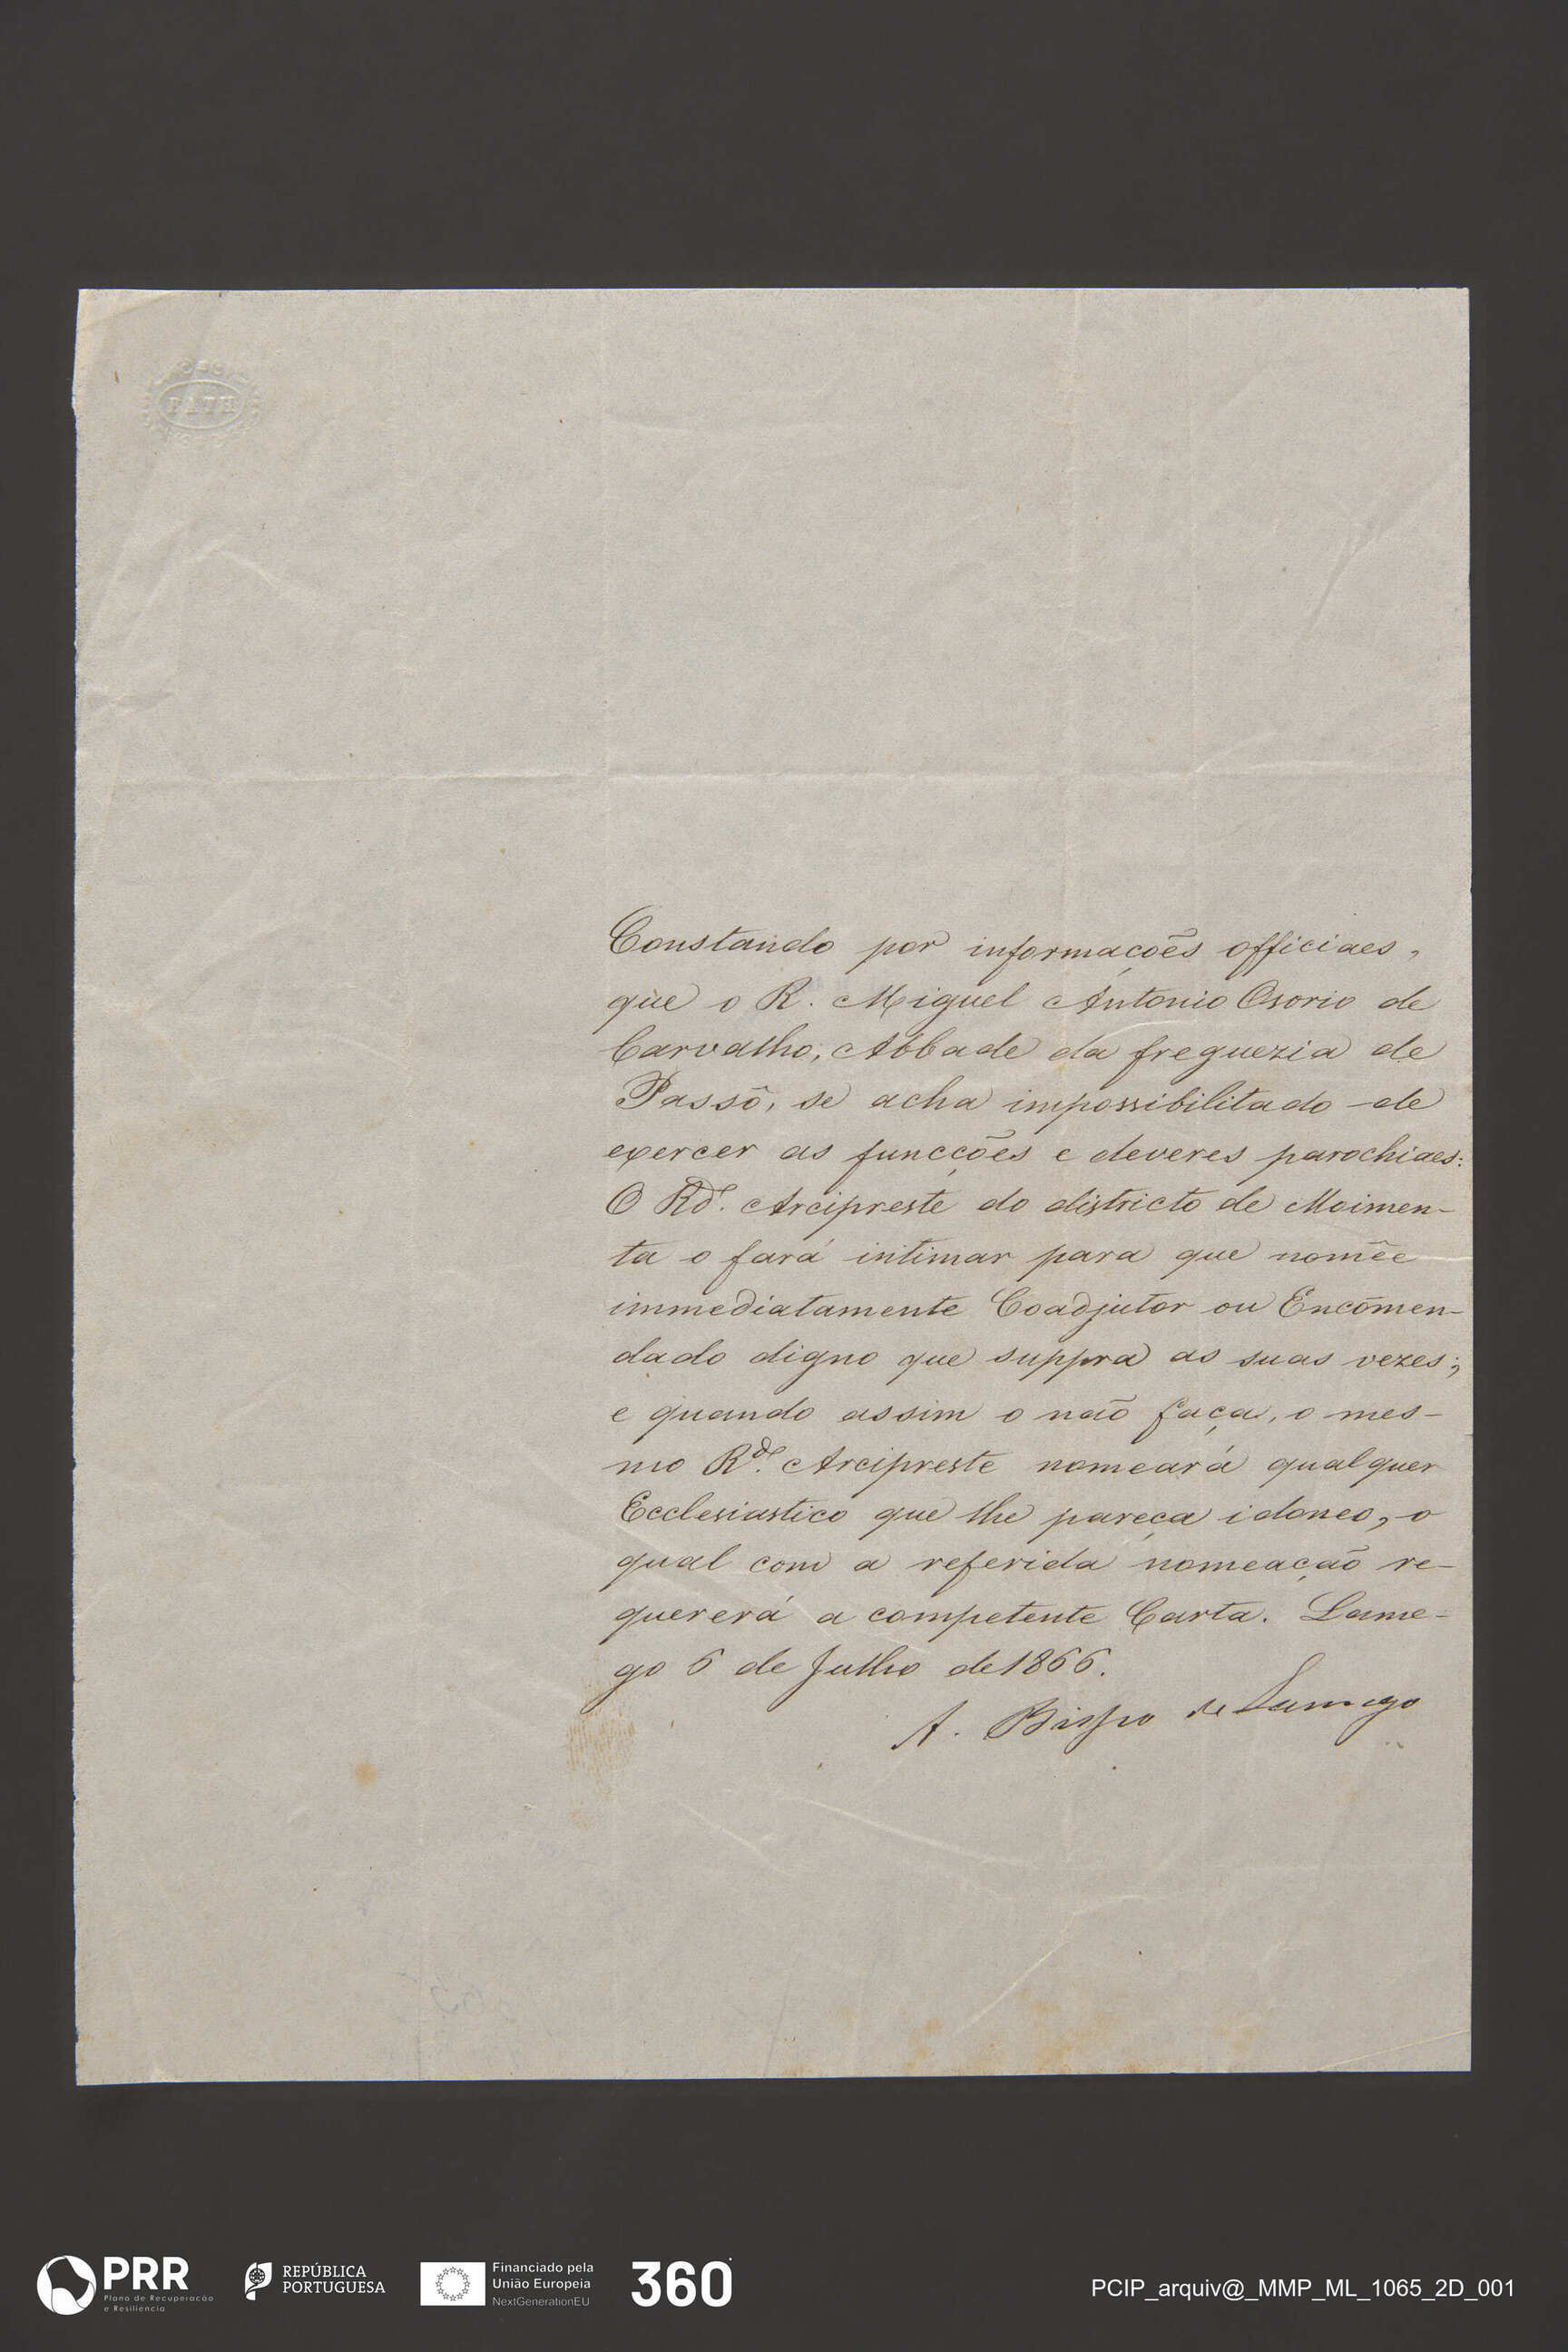 BATH
Constando por informações officiaes,
que o R. Miguel Antonio Osorio de
Carvalho, Abbade da freguezia de
Passô, se acha impossibilitado de
exercer as funcções e deveres parochiaes:
O Rdº. Arcipreste do districto de Moimen-
ta o fará intimar para que nomêe
immediatamente Coadjutor ou Encõmen-
dado digno que suppra as suas vezes;
e quando assim o não faça, o mes-
mo Rdº. Arcipreste nomeará qualquer
Ecclesiastico que lhe pareça idoneo, o
qual com a referida nomeação re-
quererá a competente Carta. Lame-
go 6 de Julho de 1866.
A. Bispo de Lamego
PRR
Plano de Recuperação
e Resiliência
REPÚBLICA
PORTUGUESA
Financiado pela
União Europeia
NextGenerationEU
360
PCIP_arquiv@_MMP_ML_1065_2D_001